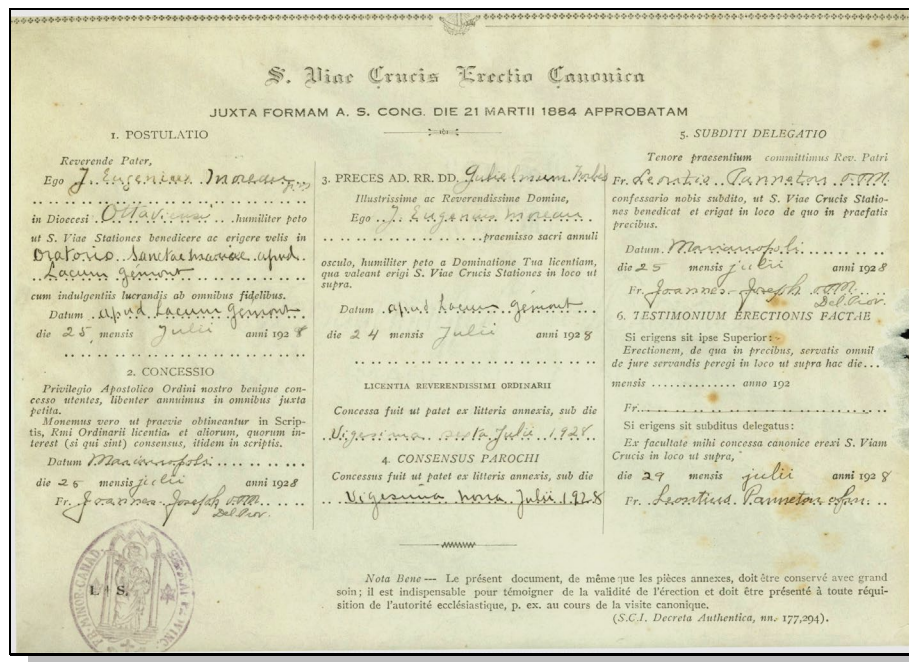 S. Viae Crucis Erectio Canonica
JUXTA FORMAM A. S. CONG. DIE 21 MARTII 1884 APPROBATAM
1. POSTULATIO
Reverende Pater,
Ego J. Eugenius Moreau
in Diocesi Ottaviensi humiliter peto
ut S. Viae Stationes benedicere ac erigere velis in
Oratorio Sanctae Mariae apud
Lacum Gemont
cum indulgentiis lucrandis ab omnibus fidelibus.
Datum apud Lacum Gemont
die 25 mensis Julii anni 1928
2. CONCESSIO
Privilegio Apostolico Ordini nostro benigne con-
cesso utentes, libenter annuimus in omnibus juxta
petita.
Monemus vero ut praevie obtineantur in Scrip-
tis, Rmi Ordinarii licentia et aliorum, quorum in-
terest (si qui sint) consensus, itidem in scriptis.
Datum Marianopoli
die 25 mensis julii anni 1928
Fr. Joannes Joseph o.f.m.
Del. Prov.
L. S.
3. PRECES AD. RR. DD. Gulielmum Forbes
Illustrissime ac Reverendissime Domine,
Ego J. Eugenius Moreau
praemisso sacri annuli
osculo, humiliter peto a Dominatione Tua licentiam,
qua valeant erigi S. Viae Crucis Stationes in loco ut
supra.
Datum apud Lacum Gemont
die 24 mensis Julii anni 1928
LICENTIA REVERENDISSIMI ORDINARII
Concessa fuit ut patet ex litteris annexis, sub die
Vigesima sexta Julii 1928
4. CONSENSUS PAROCHI
Concessus fuit ut patet ex litteris annexis, sub die
Vigesima nona Julii 1928
5. SUBDITI DELEGATIO
Tenore praesentium committimus Rev. Patri
Fr. Leontio Panneton o.f.m.
confessario nobis subdito, ut S. Viae Crucis Statio-
nes benedicat et erigat in loco de quo in praefatis
precibus.
Datum Marianopoli
die 25 mensis julii anni 1928
Fr. Joannes Joseph o.f.m.
Del. Prov.
6. TESTIMONIUM ERECTIONIS FACTAE
Si erigens sit ipse Superior:
Erectionem, de qua in precibus, servatis omnib
de jure servandis peregi in loco ut supra hac die...
mensis ............. anno 192
Fr.
Si erigens sit subditus delegatus:
Ex facultate mihi concessa canonice erexi S. Viam
Crucis in loco ut supra,
die 29 mensis julii anni 1928
Fr. Leontius Panneton o.f.m.
Nota Bene — Le présent document, de même que les pièces annexes, doit être conservé avec grand
soin; il est indispensable pour témoigner de la validité de l'érection et doit être présenté à toute réqui-
sition de l'autorité ecclésiastique, p. ex. au cours de la visite canonique.
(S.C.I. Decreta Authentica, nn. 177,294).